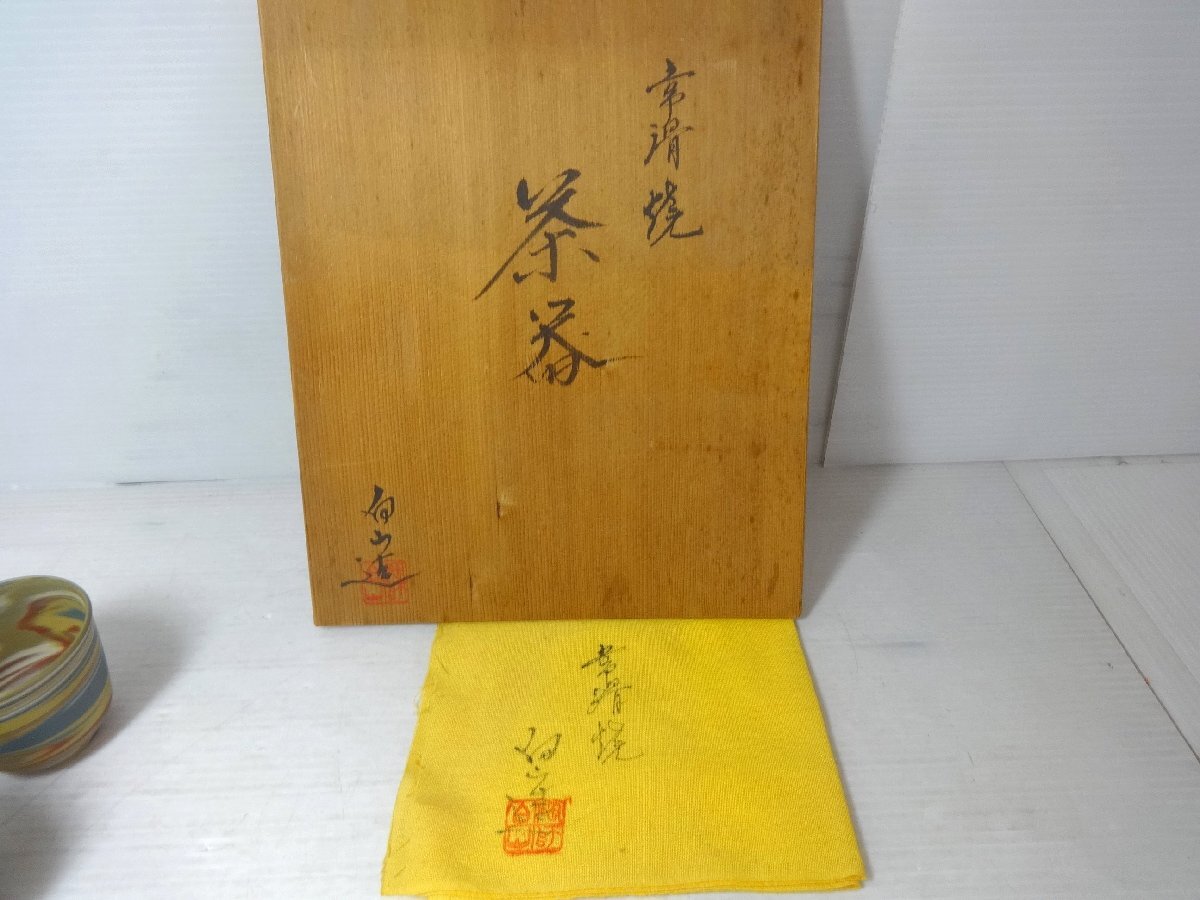 常滑焼
茶器
白山造
常滑焼
白山造